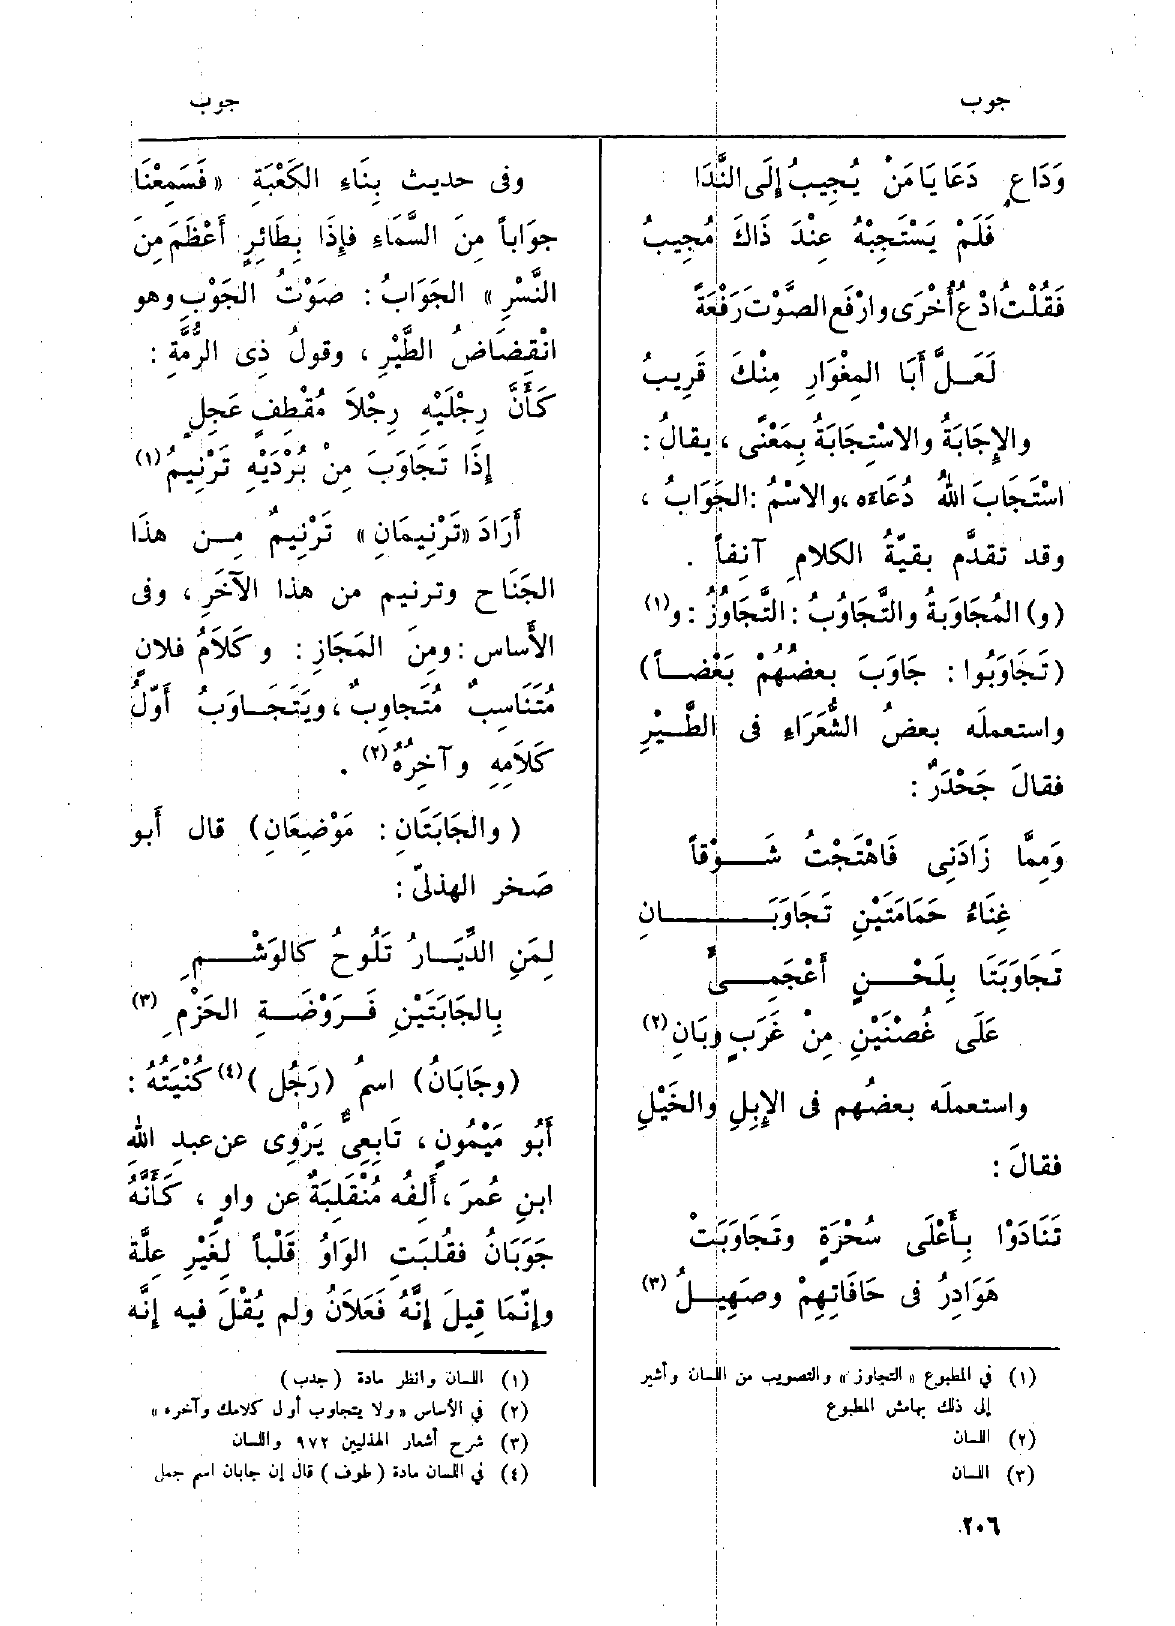 جوب
جوب
وَدَاعٍ دَعَا يَا مَنْ يُجِيبُ إِلَى النَّدَا
فَلَمْ يَسْتَجِبْهُ عِنْدَ ذَاكَ مُجِيبُ
فَقُلْتُ ادْعُ أُخْرَى وارْفَعِ الصَّوْتَ رَفْعَةً
لَعَلَّ أَبَا المِغْوَارِ مِنْكَ قَرِيبُ
والإِجَابَةُ والاسْتِجَابَةُ بِمَعْنًى ، يقالُ :
اسْتَجَابَ اللهُ دُعَاءَه ، والاسْمُ : الجَوَابُ ،
وقد تقدَّم بقيّةُ الكلامِ آنِفاً .
(و) المُجَاوَبةُ والتَّجَاوُبُ : التَّجَاوُزُ : و(١)
(تَجَاوَبُوا : جَاوَبَ بعضُهُمْ بَعْضاً)
واستعملَه بعضُ الشُّعَرَاءِ فى الطَّيْرِ
فقالَ جَحْدَرٌ :
وَمِمَّا زَادَنِى فَاهْتَجْتُ شَوْقاً
غِنَاءُ حَمَامَتَيْنِ تَجَاوَبَانِ
تَجَاوَبَتَا بِلَحْنٍ أَعْجَمِىٍّ
عَلَى غُصْنَيْنِ مِنْ غَرَبٍ وبَانِ (٢)
واستعملَه بعضُهم فى الإِبِلِ والخَيْلِ
فقالَ :
تَنَادَوْا بِأَعْلَى سُحْرَةٍ وتَجَاوَبَتْ
هَوَادِرُ فى حَافَاتِهِمْ وصَهِيلُ (٣)
(١) في المطبوع « التجاوز » والتصويب من اللسان وأشير
إلى ذلك بهامش المطبوع
(٢) اللسان
(٣) اللسان
وفى حديث بِنَاءِ الكَعْبَةِ « فَسَمِعْنَا
جوَاباً مِنَ السَّمَاءِ فإِذَا بِطَائِرٍ أَعْظَمَ مِنَ
النَّسْرِ » الجَوَابُ : صَوْتُ الجَوْبِ وهو
انْقِضَاضُ الطَّيْرِ ، وقولُ ذِى الرُّمَّةِ :
كَأَنَّ رِجْلَيْهِ رِجْلاَ مُقْطِفٍ عَجِلٍ
إِذَا تَجَاوَبَ مِنْ بُرْدَيْهِ تَرْنِيمُ (١)
أَرَادَ « تَرْنِيمَانِ » تَرْنِيمٌ مِن هذَا
الجَنَاح وترنيم من هذا الآخَرِ ، وفى
الأَساس : ومِنَ المَجَازِ : وكَلاَمُ فلانٍ
مُتَنَاسِبٌ مُتَجاوِبٌ ، ويَتَجَاوَبُ أَوّلُ
كَلاَمِهِ وآخِرُهُ (٢) .
(والجَابَتَانِ : مَوْضِعَانِ) قال أَبو
صَخر الهذلىّ :
لِمَنِ الدِّيَارُ تَلُوحُ كالوَشْمِ
بِالجَابَتَيْنِ فَرَوْضَةِ الحَزْمِ (٣)
(وجَابَانُ) اسمُ (رَجُل) (٤) كُنْيَتُهُ :
أَبُو مَيْمُونٍ ، تَابِعِىٌّ يَرْوِى عن عبدِ الله
ابنِ عُمرَ ، أَلِفُه مُنْقَلِبَةٌ عن واوٍ ، كَأَنَّهُ
جَوَبَانُ فقُلبَتِ الوَاوُ قَلْباً لِغَيْرِ عِلّة
وإِنّمَا قِيلَ إِنَّهُ فَعَلاَنُ ولم يُقْلَ فيه إِنَّه
(١) اللسان وانظر مادة (جدب)
(٢) في الأساس « ولا يتجاوب أول كلامك وآخره »
(٣) شرح أشعار الهذليين ٩٧٢ واللسان
(٤) في اللسان مادة (طوف) قال إن جابان اسم جمل
٢٠٦